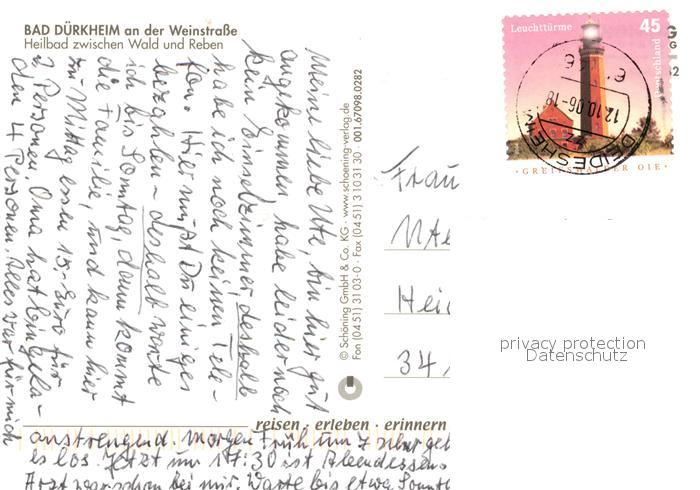 BAD DÜRKHEIM an der Weinstraße
Heilbad zwischen Wald und Reben
Leuchttürme 45
Deutschland
GREIFSWALDER OIE
12.10.06-18
DEIDESHEIM
Meine liebe Ute, bin hier gut
angekommen, habe leider noch
kein Einzelzimmer deshalb
habe ich noch keinen Tele-
fon. Hier mußt Du einiges
bezahlen - deshalb warte
ich bis Sonntag, dann kommt
die Familie, und kann hier
zu Mittag essen 15,- Euro für
2 Personen Oma hat eingela-
den 4 Personen. Alles war für mich
anstrengend. Morgen Früh um 7
es los. Jetzt um 17:30 ist Abendessen
Arzt war schon bei mir. Warte bis etwa
© Schöning GmbH & Co. KG · www.schoening-verlag.de
Fon (04 51) 31 03-0 · Fax (04 51) 3 10 31 30 · 001.67098.0282
reisen · erleben · erinnern
Frau
Ute
34,
privacy protection
Datenschutz